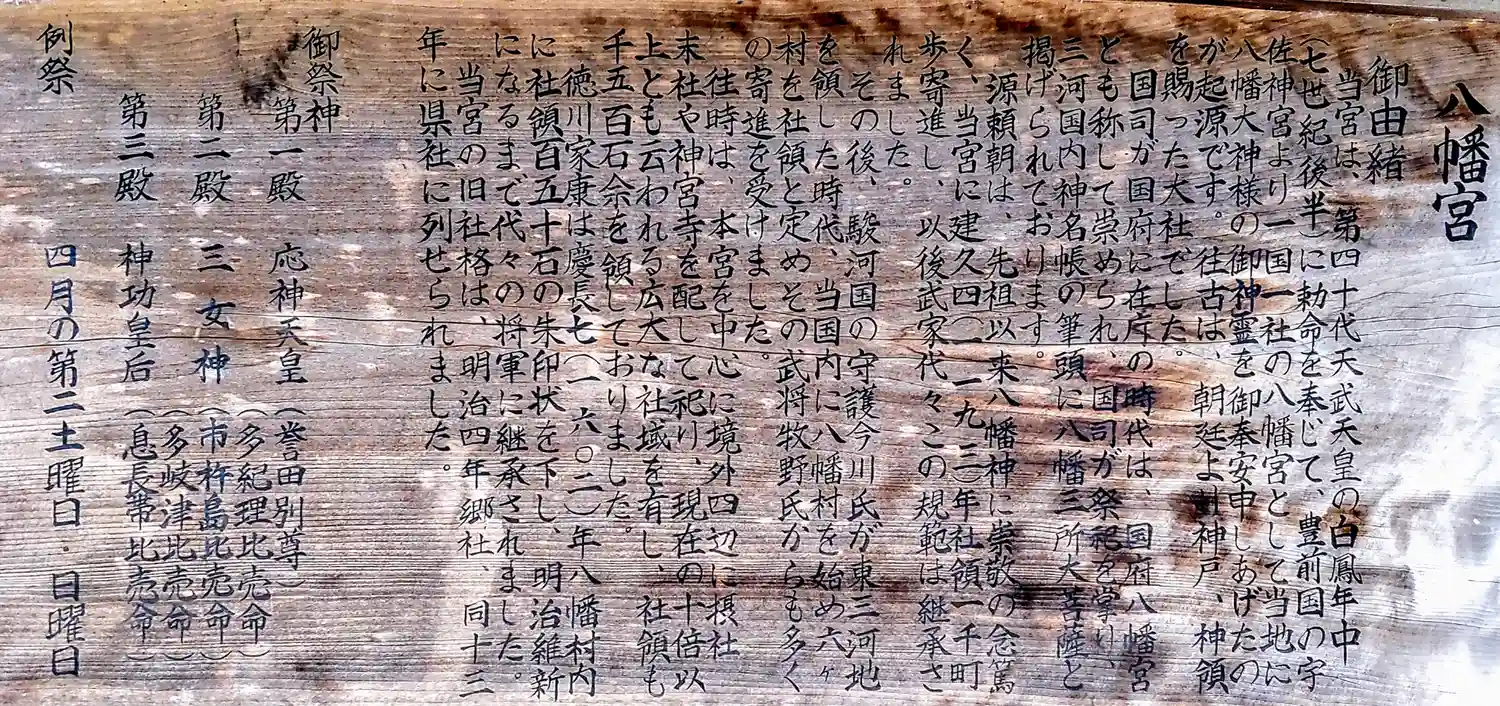 八幡宮
御由緒
当宮は、第四十代天武天皇の白鳳年中
（七世紀後半）に勅命を奉じて、豊前国の宇
佐神宮より一国一社の八幡宮として当地に
八幡大神様の御神霊を御奉安申しあげたの
が起源です。往古は、朝廷より神戸、神領
を賜った大社でした。
国司が国府に在庁の時代は、国府八幡宮
とも称して崇められ、国司が祭祀を掌り、
三河国内神名帳の筆頭に八幡三所大菩薩と
掲げられております。
源頼朝は、先祖以来八幡神に崇敬の念篤
く、当宮に建久四（一一九三）年社領一千町
歩寄進し、以後武家代々この規範は継承さ
れました。
その後、駿河国の守護今川氏が東三河地
を領した時代、当国内に八幡村を始め六ヶ
村を社領と定めその武将牧野氏からも多く
の寄進を受けました。
往時は、本宮を中心に境外四辺に摂社
末社や神宮寺を配して祀り、現在の十倍以
上とも云われる広大な社域を有し、社領も
千五百石余を領しておりました。
徳川家康は慶長七（一六〇二）年八幡村内
に社領百五十石の朱印状を下し、明治維新
になるまで代々の将軍に継承されました。
当宮の旧社格は、明治四年郷社、同十三
年に県社に列せられました。
御祭神
第一殿 応神天皇（誉田別尊）
第二殿 三女神（多紀理比売命）
（市杵島比売命）
（多岐津比売命）
第三殿 神功皇后（息長帯比売命）
例祭 四月の第二土曜日・日曜日